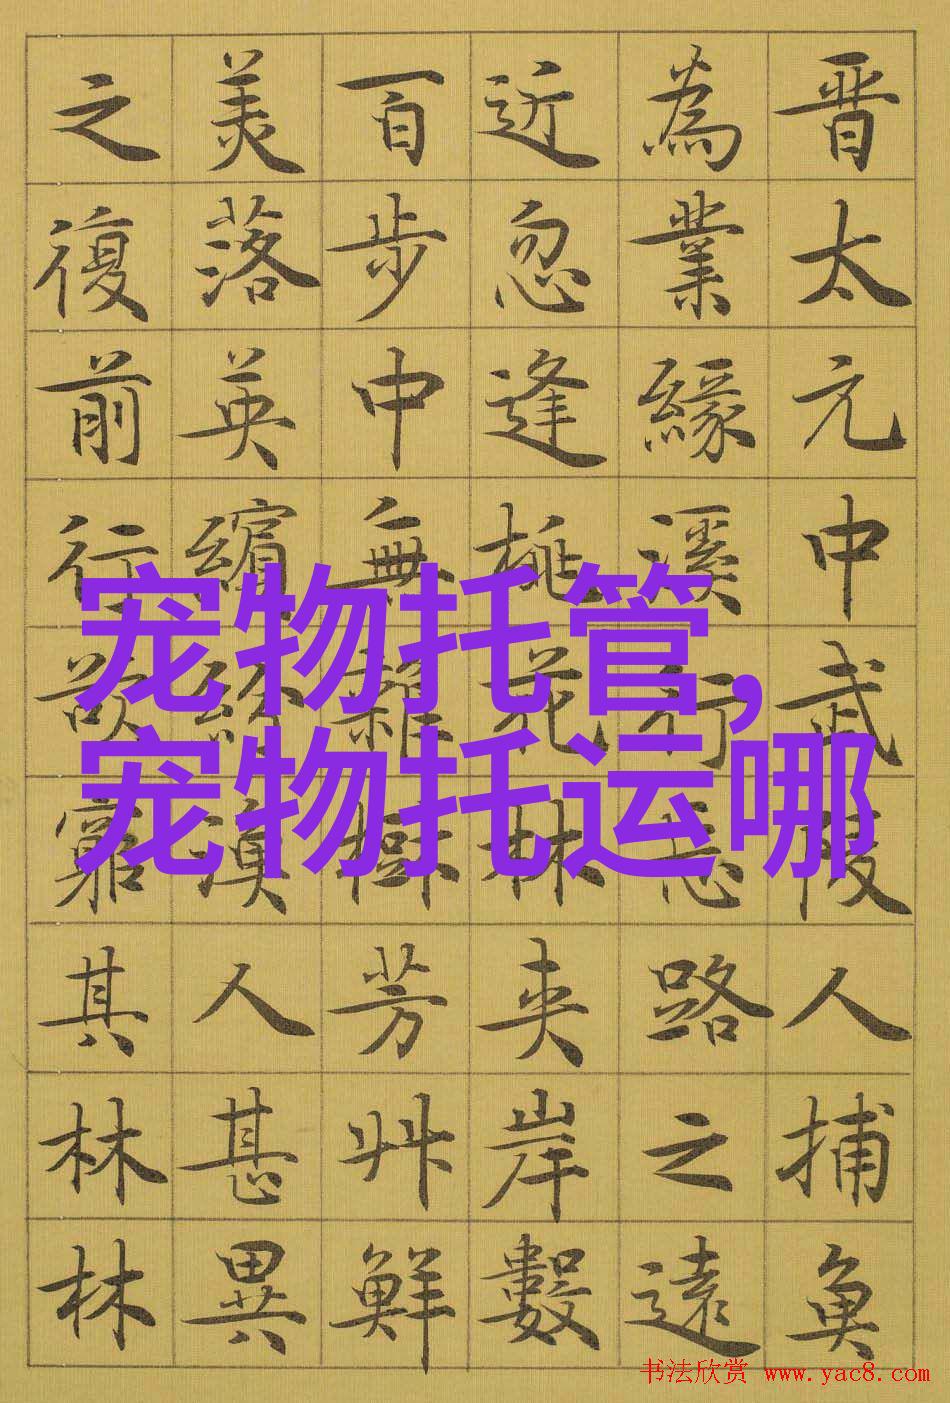 晋太元中武陵人捕魚
為業緣溪行忘路之遠
近忽逢桃花林夾岸數
百步中無雜樹芳艸鮮
美落英繽紛漁人甚異
之復前行欲窮其林林
宠物托管,
宠物托运哪
书法欣赏 www.yac8.com